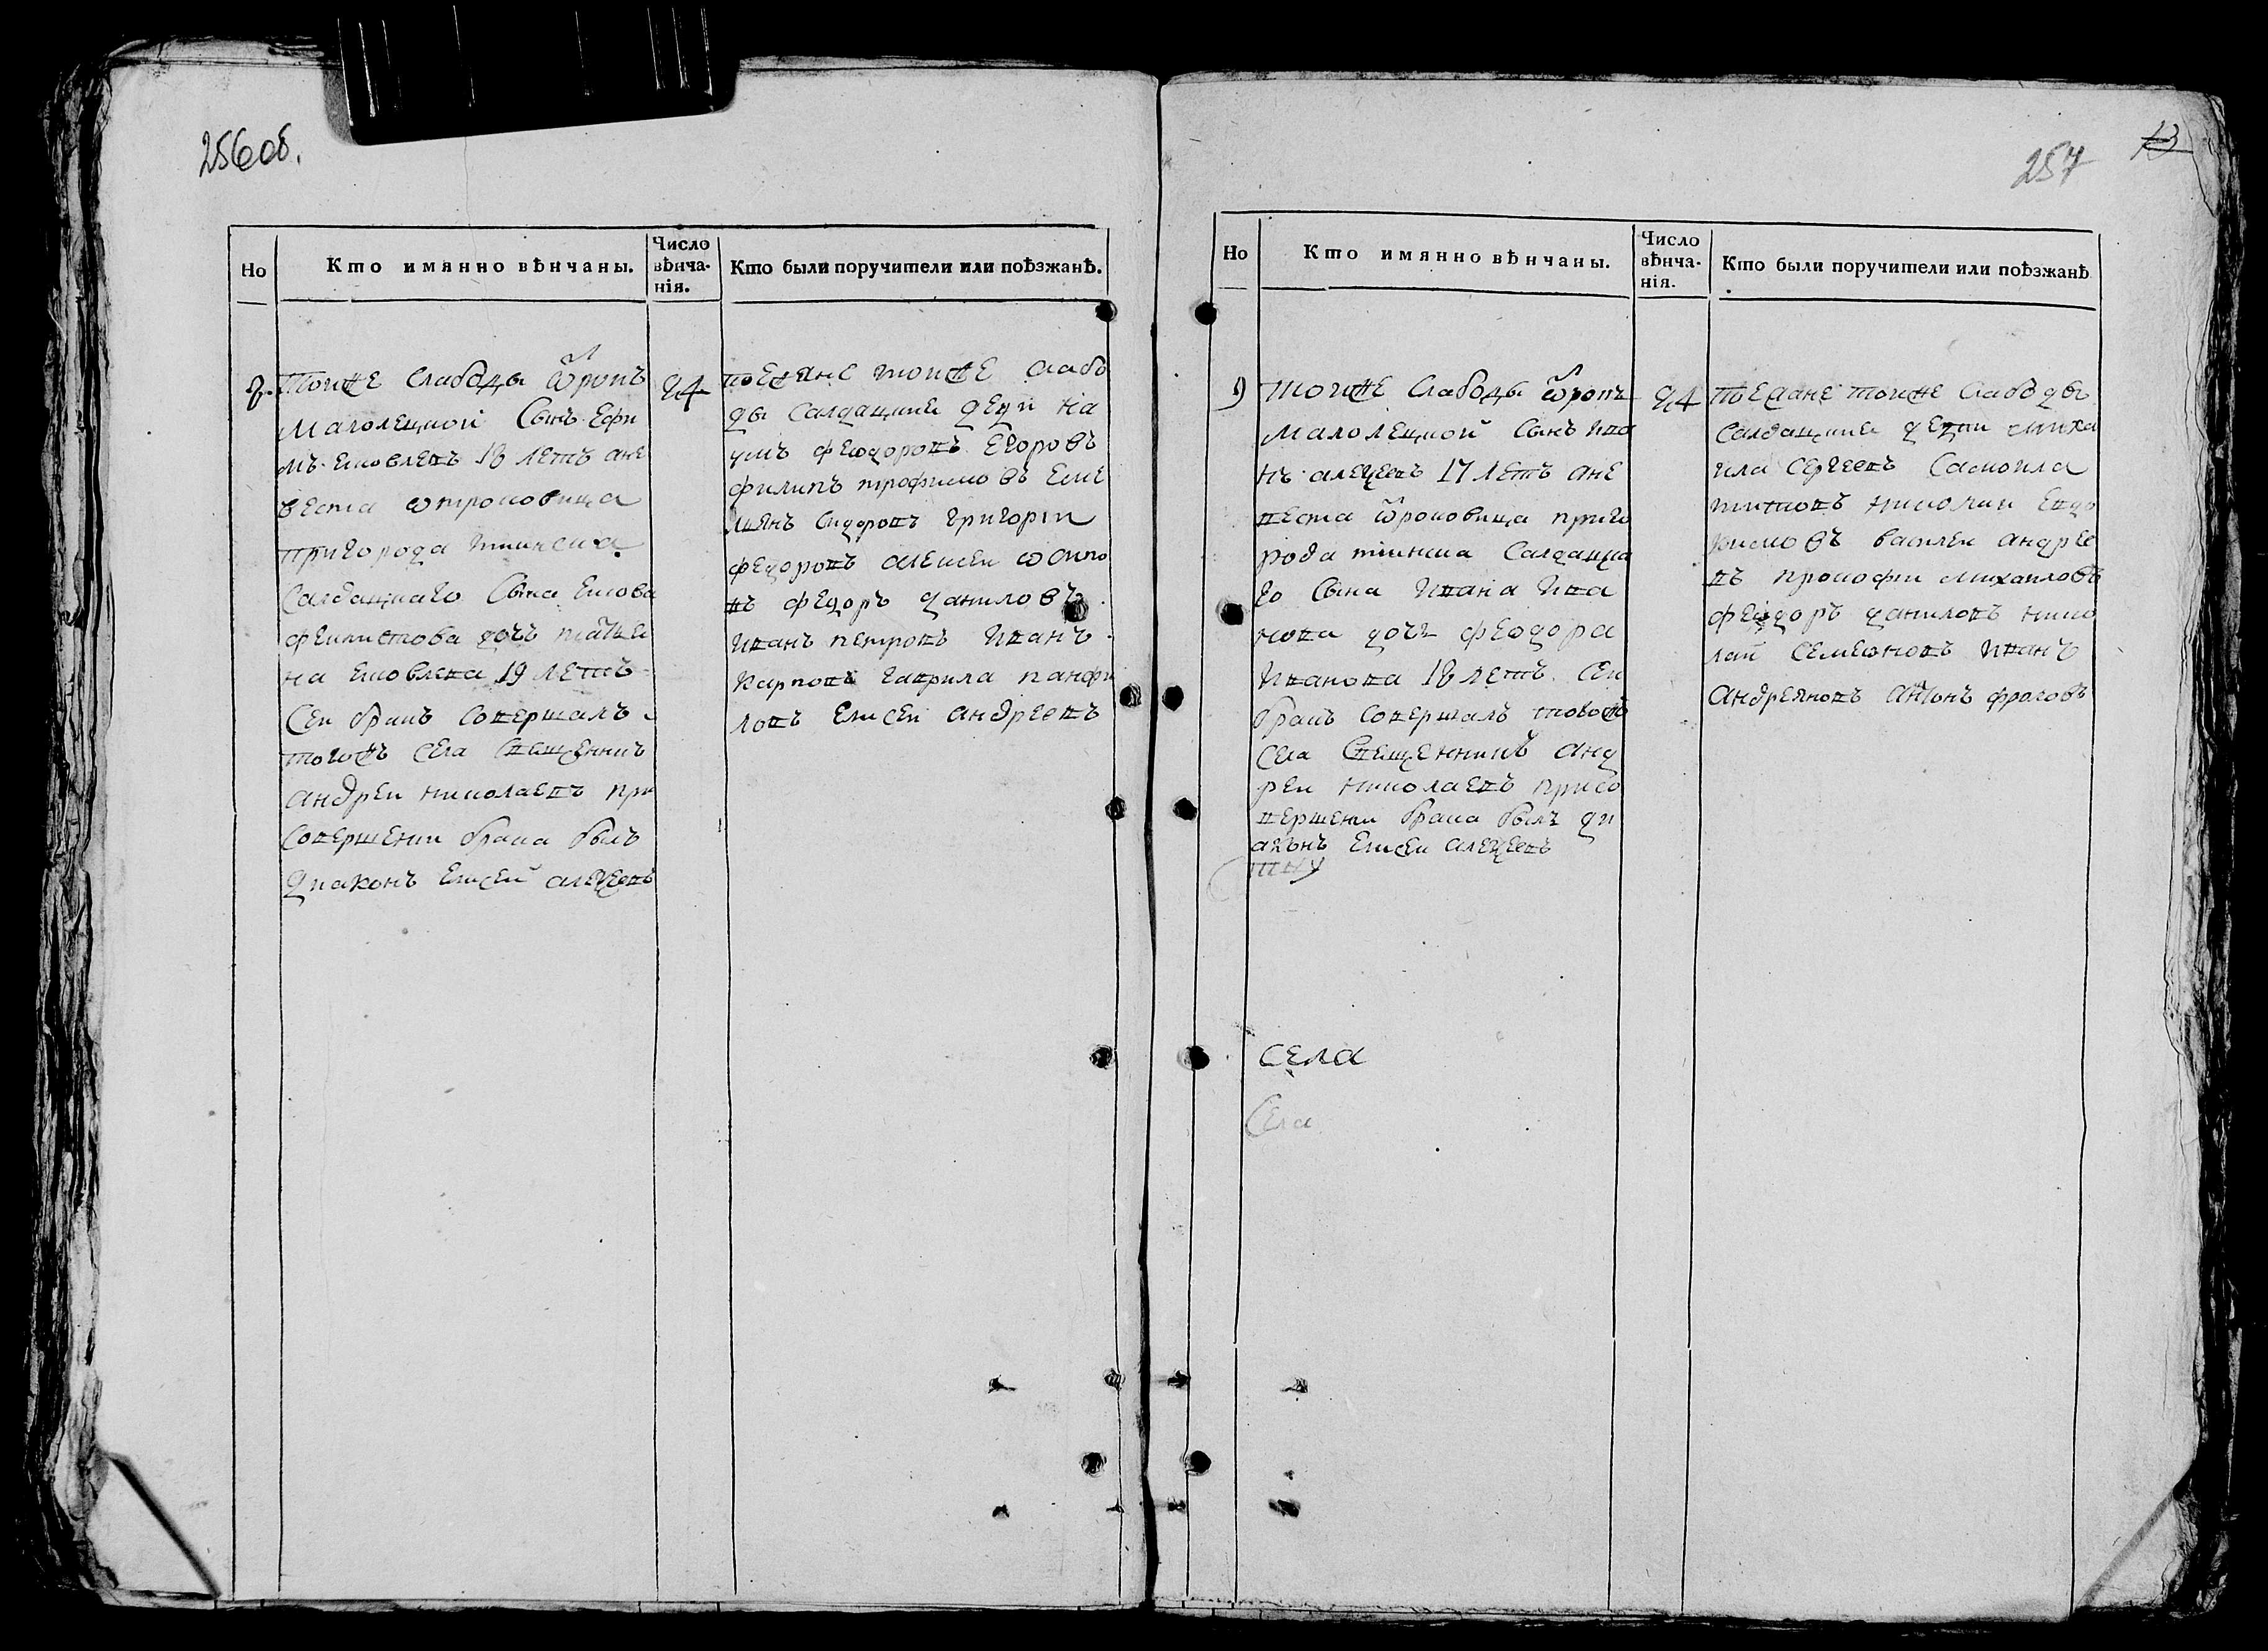 256об.
Но
Кто имянно вѣнчаны.
Число
вѣнча-
нія.
Кто были поручители или поѣзжанѣ.
8.
тоиже слабоды ѿрокъ
малолецкои сынъ Ефи
мъ Ековлевъ 18 летъ ане
веста отроковица
пригорода тиинска
салдацкаго сына Екова
феклистова дочь
на Ековлева 19 летъ
сеи бракъ совершалъ
тогожъ села священникъ
андреи николаевъ при
совершени брака былъ
диаконъ Елисеи алеѯеевъ
24
поезжане тоиже слабо
ды салдацкие дети на
умъ феодоровъ Егоровъ
филипъ трофимовъ Еме
льянъ сидоровъ григореи
федоровъ алексеи осипо
въ федоръ даниловъ
иванъ петровъ иванъ
карповъ гаврила панфи
ловъ Елисеи андреевъ
257
13
Но
Кто имянно вѣнчаны.
Число
вѣнча-
нія.
Кто были поручители или поѣзжанѣ
9
тоиже слабоды ѿрокъ
малолецкой сынъ ива
нъ алеѯеевъ 17 летъ ане
веста ѿроковица приго
рода тиинска салдацка
го сына ивана ива
нова дочь феодора
иванова 18 летъ сеи
бракъ совершалъ тогожъ
села священникъ анд
реи николаевъ присо
вершени брака былъ ди
аконъ Елисеи алеѯеевъ
села
села
24
поезжане тоиже слабоды
салдацкие дети миха
ила сергеевъ самоила
титовъ николаи Евдо
кимовъ василеи андрее
въ прокофеи михаиловъ
феодоръ даниловъ нико
лаи семеоновъ иванъ
андреяновъ антонъ фроловъ